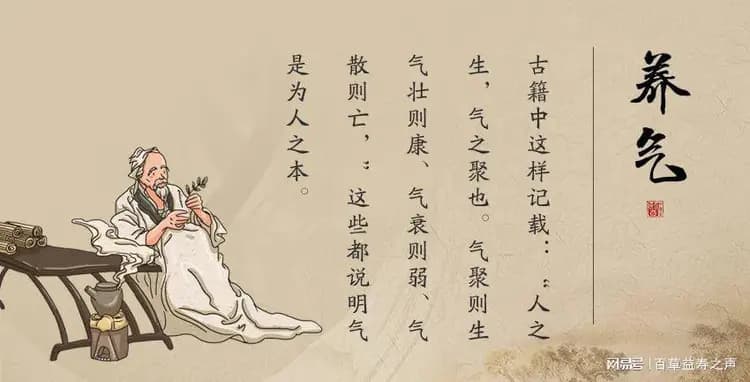 养气
古籍中这样记载：“人之
生，气之聚也。气聚则生
气壮则康、气衰则弱、气
散则亡，”这些都说明气
是为人之本。
网易号 | 百草益寿之声